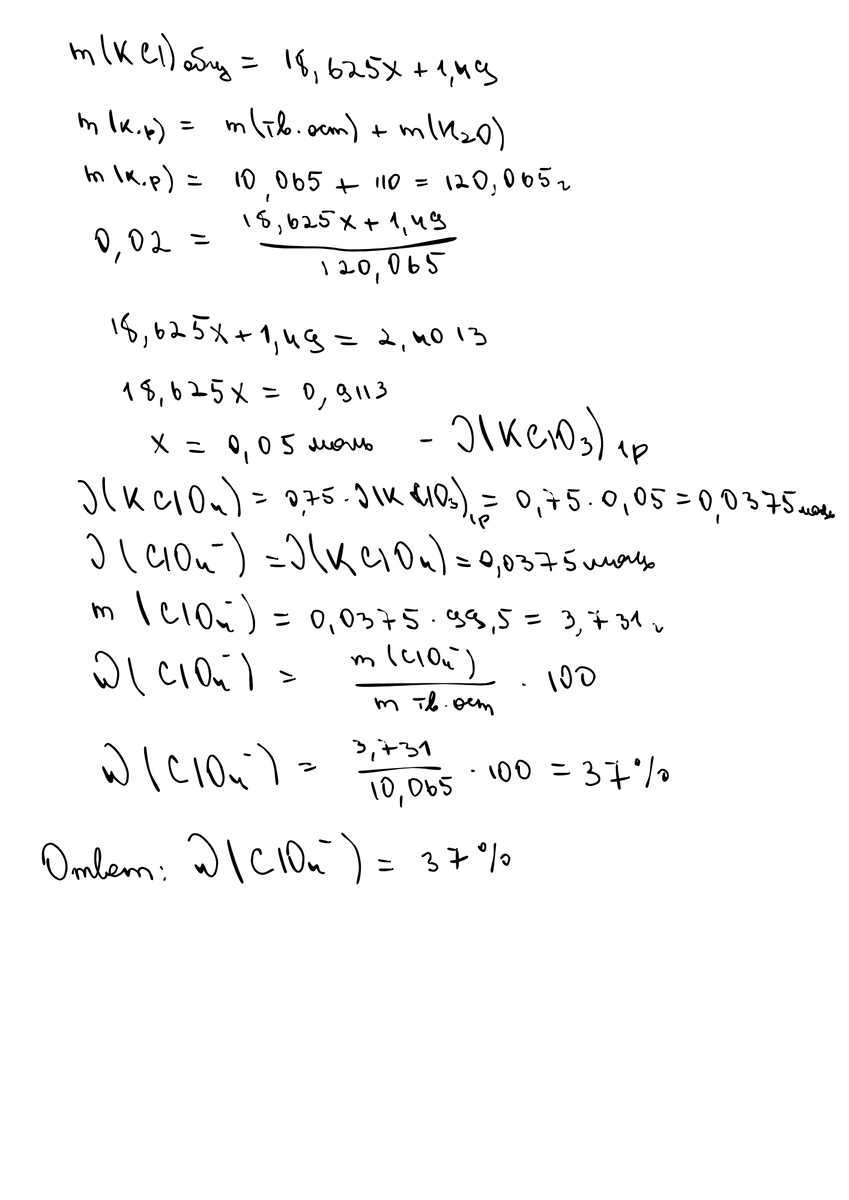 m(KCl)общ = 18,625x + 1,49
m(к.р) = m(тв.ост) + m(H₂O)
m(к.р) = 10,065 + 110 = 120,065 г
0,02 = (18,625x + 1,49) / 120,065
18,625x + 1,49 = 2,4013
18,625x = 0,9113
x = 0,05 моль – ν(KClO₃)₁ᵣ
ν(KClO₄) = 0,75 · ν(KClO₃)₁ᵣ = 0,75 · 0,05 = 0,0375 моль
ν(ClO₄⁻) = ν(KClO₄) = 0,0375 моль
m(ClO₄⁻) = 0,0375 · 99,5 = 3,731 г
ω(ClO₄⁻) = m(ClO₄⁻) / m тв.ост · 100
ω(ClO₄⁻) = 3,731 / 10,065 · 100 = 37%
Ответ: ω(ClO₄⁻) = 37%